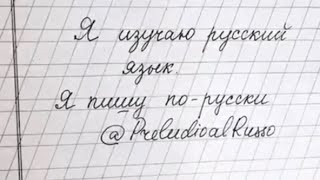 Я изучаю русский
язык.
Я пишу по-русски
@PreludioalRusso